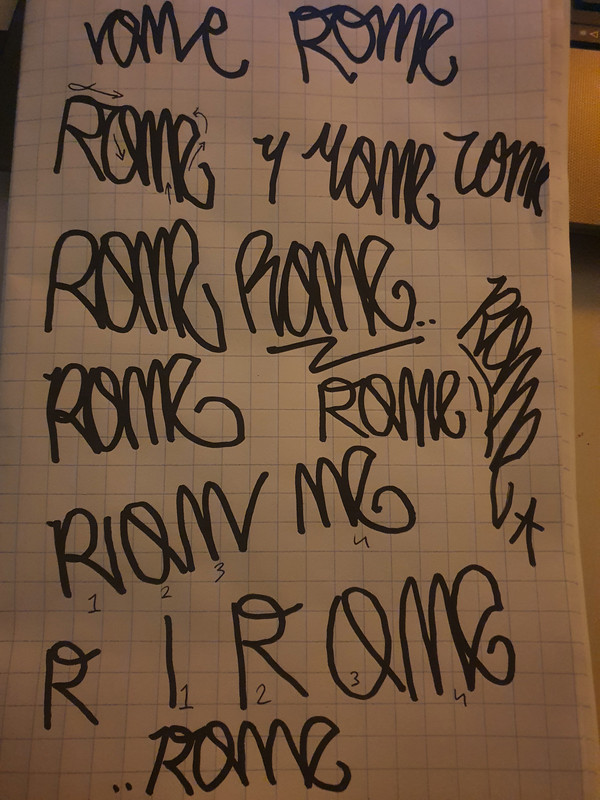 rome ROME
ROME Y Yome rome
ROME ROME..
ROME ROME' ROME
R I O M ME
1 2 3 4
R I R OME
1 2 3 4
..ROME